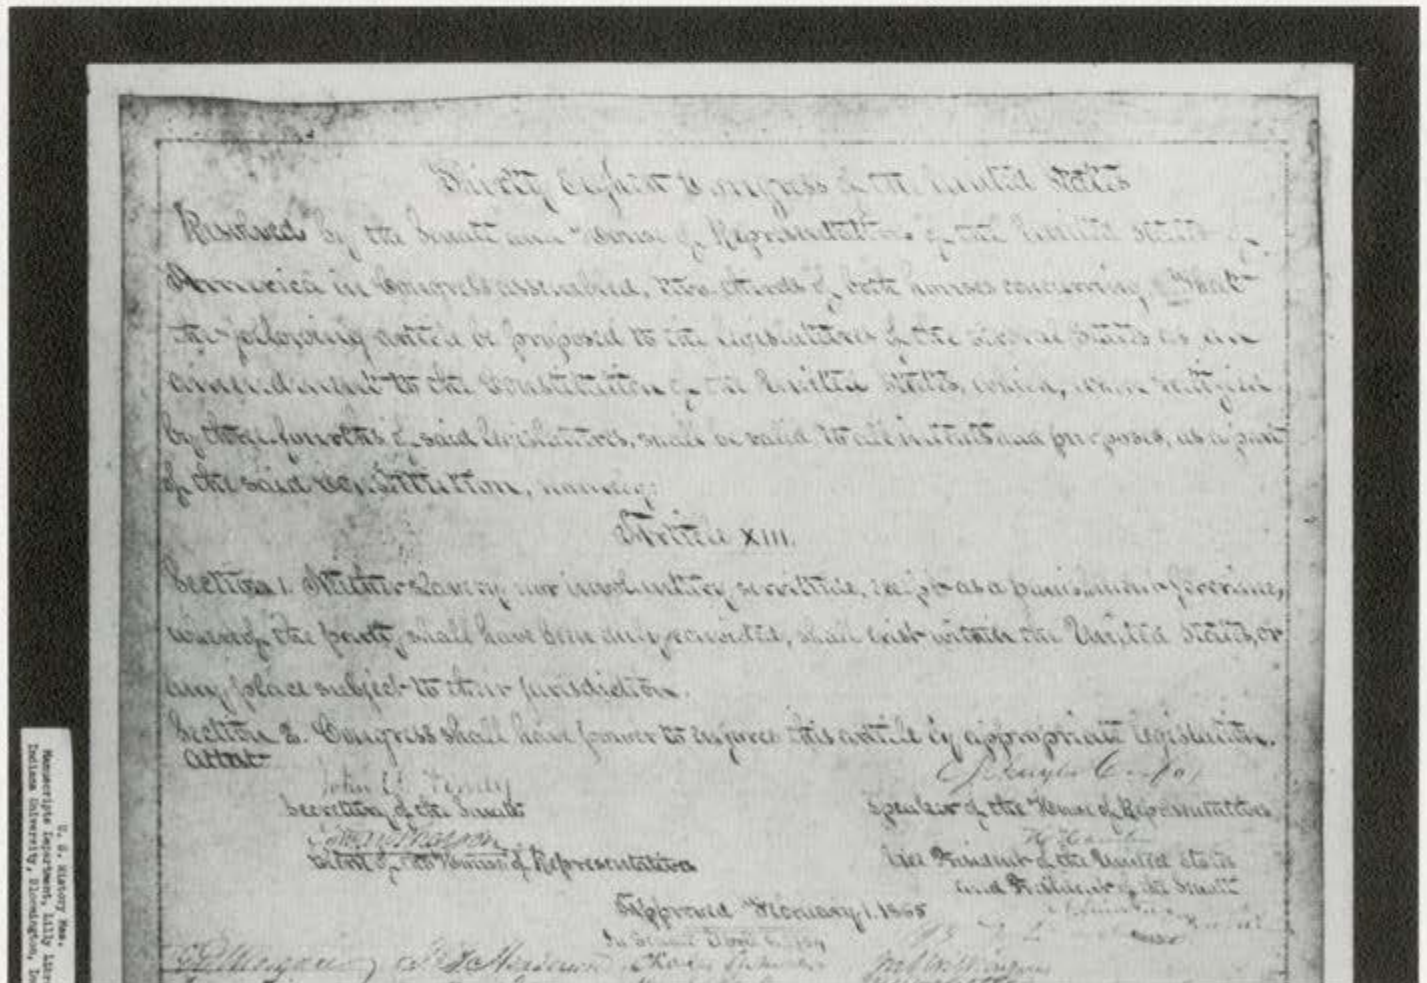 Thirty Eighth Congress of the United States
Resolved by the Senate and House of Representatives of the United States of
America in Congress assembled, two thirds of both houses concurring, That
the following article be proposed to the legislatures of the several States as an
amendment to the Constitution of the United States, which, when ratified
by three-fourths of said Legislatures, shall be valid, to all intents and purposes, as a part
of the said Constitution, namely:
Article XIII.
Section 1. Neither slavery nor involuntary servitude, except as a punishment for crime,
whereof the party shall have been duly convicted, shall exist within the United States, or
any place subject to their jurisdiction.
Section 2. Congress shall have power to enforce this article by appropriate legislation.
Attest
Schuyler Colfax
John W. Forney
Secretary of the Senate
Speaker of the House of Representatives
H Hamlin
Clerk of the House of Representatives
Vice President of the United States
and President of the Senate
Approved February 1. 1865
In Senate April 8, 1864
U. S. History Mss.
Manuscripts Department, Lilly
Indiana University, Bloomington,